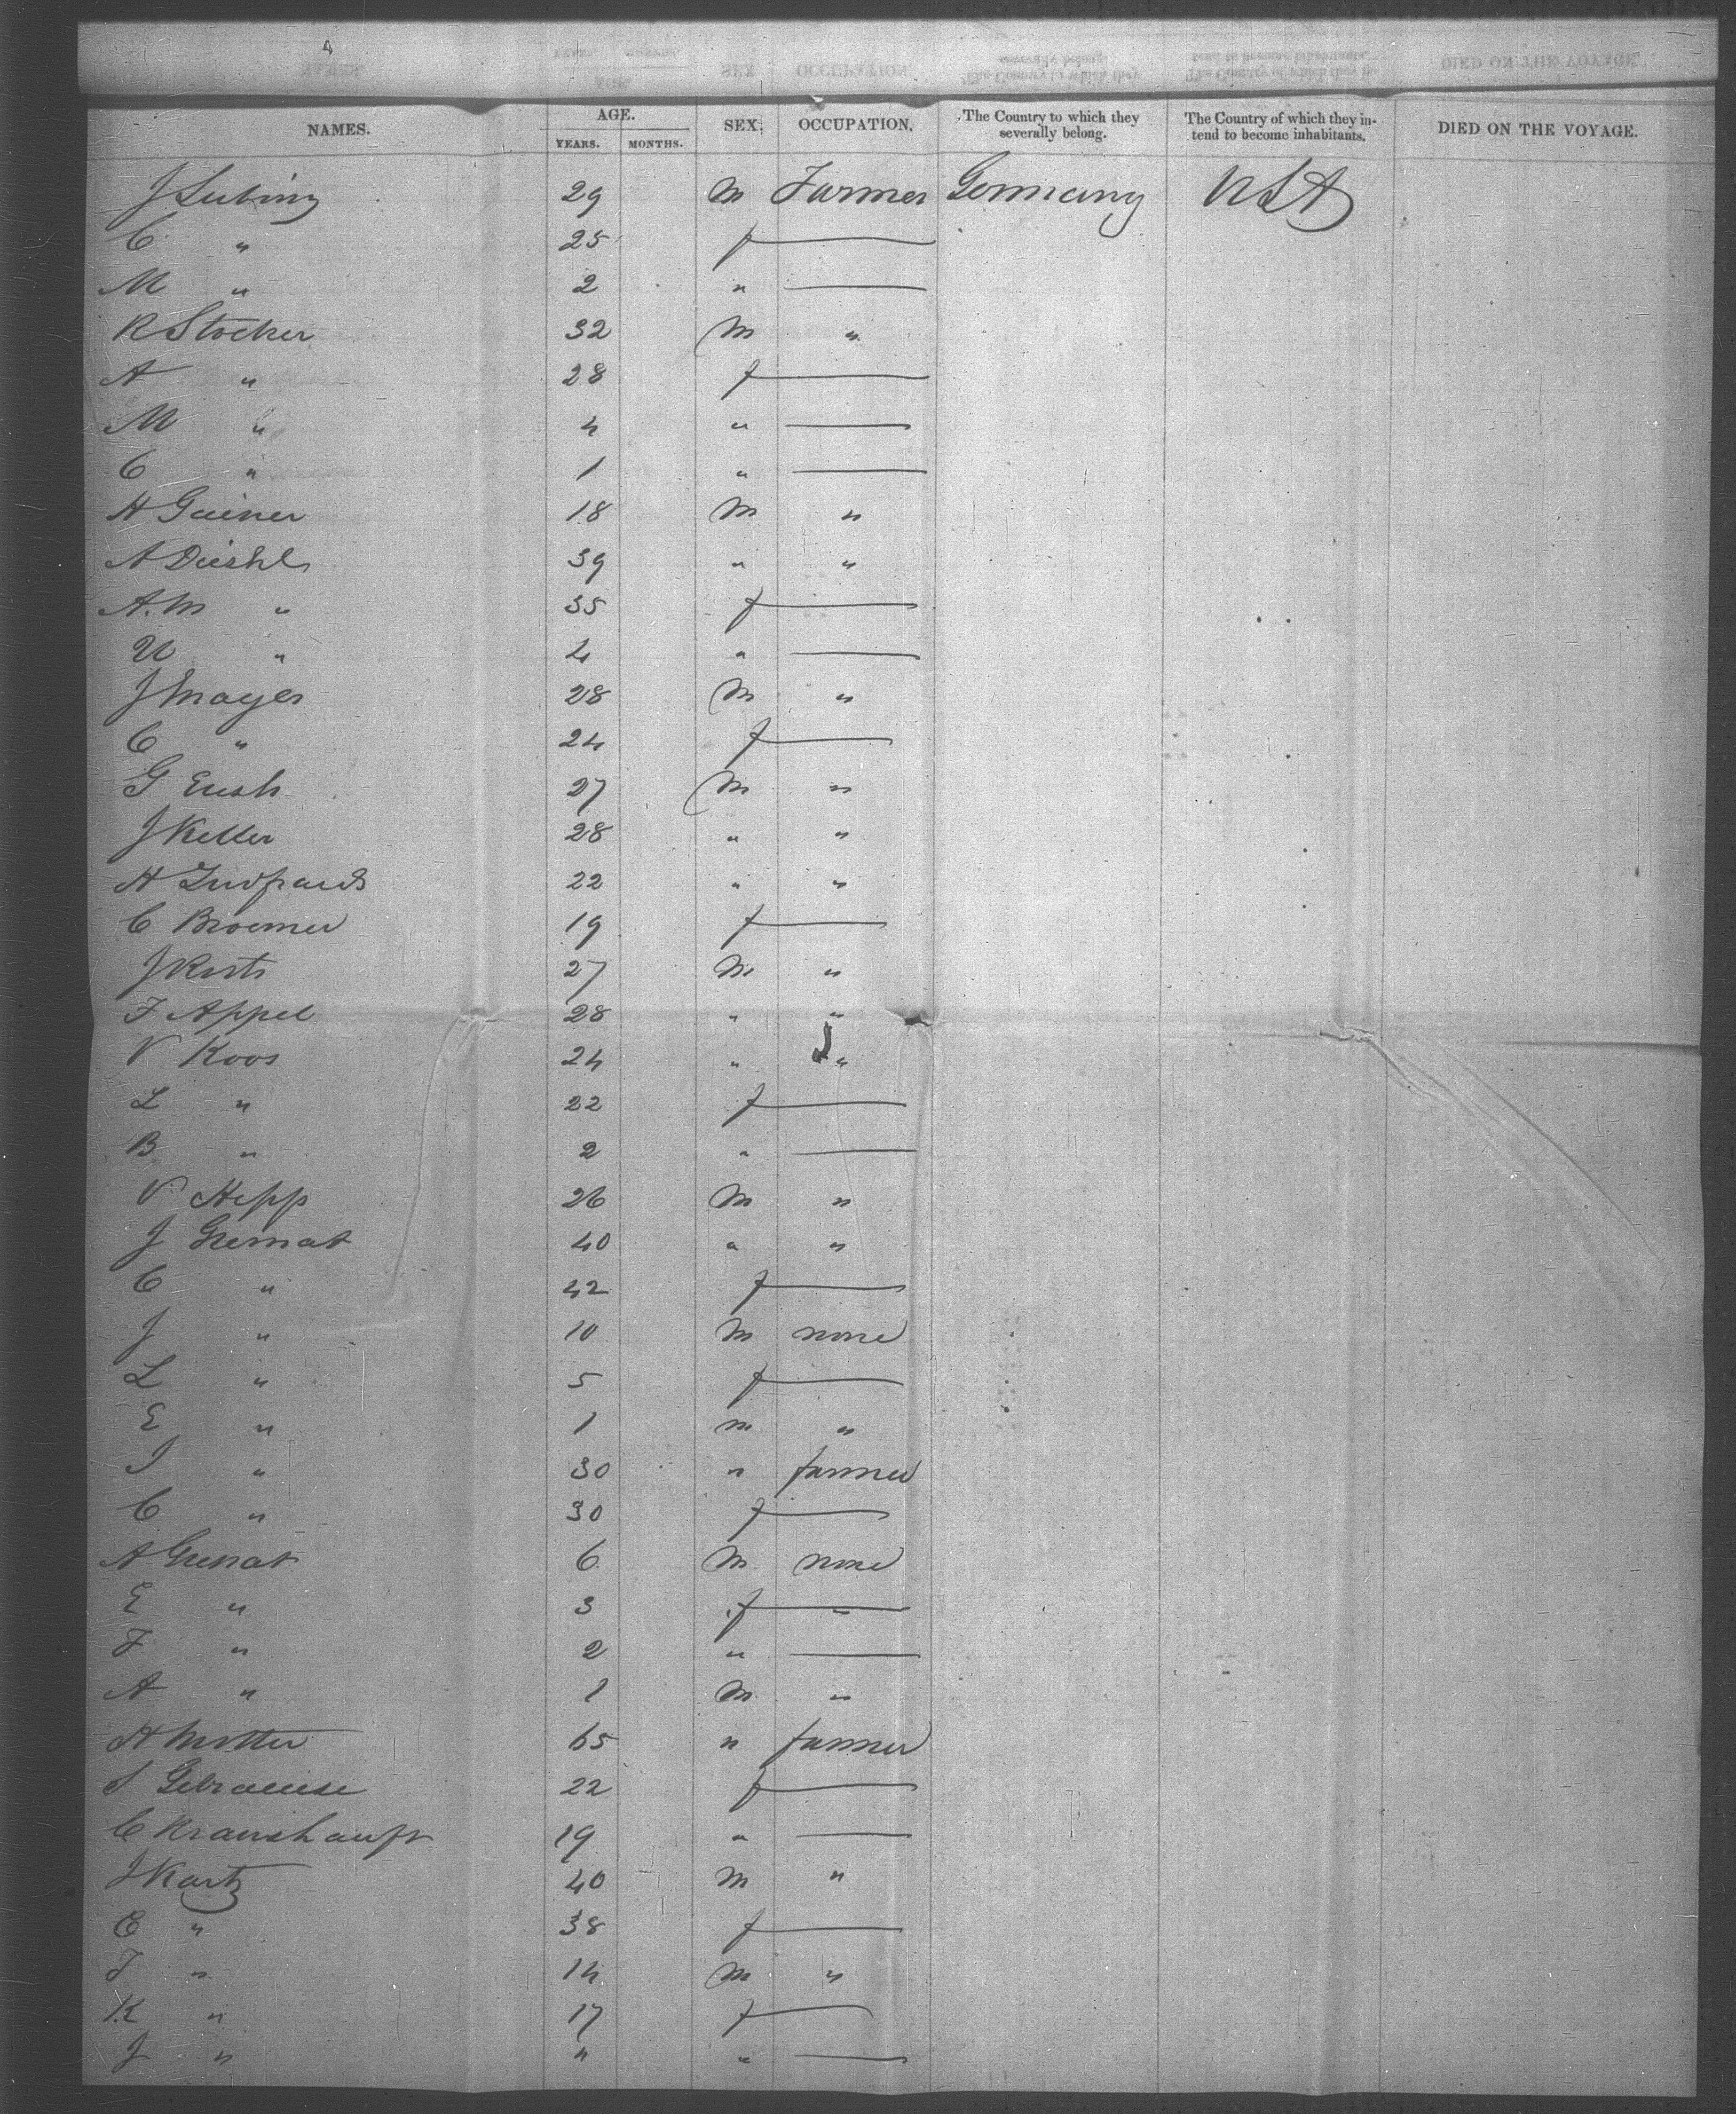 4
NAMES. AGE. YEARS. MONTHS. SEX. OCCUPATION. The Country to which they severally belong. The Country of which they intend to become inhabitants. DIED ON THE VOYAGE.
J 29 m Farmer Germany USA
C " 25 f —
M " 2 " —
R Stocker 32 M "
A " 28 f —
M " 4 " —
C " 1 " —
H Gainer 18 M "
A Diehl 39 " "
A. M " 35 f —
" " —
J Mayer 28 M "
C " 24 f —
G 27 M "
J Keller 28 " "
H 22 " "
C Broemer 19 f —
J 27 M "
F Appel 28 " "
V Koos 24 " "
L " 22 f —
B " 2 " —
V Hepp 26 M "
J Grenat 40 " "
C " 42 f —
J " 10 M none
L " 5 f —
E " 1 m "
" 30 " farmer
C " 30 f —
A Grenat 6 M none
E " 3 f —
F " 2 " —
A " 1 M "
H 65 " farmer
22 f —
C 19 " —
J Kartz 40 M "
C " 38 f —
" 14 M "
K " 17 f —
J " " " —